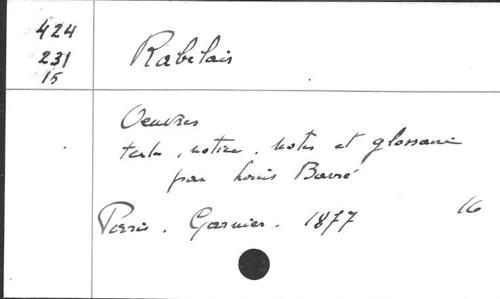 424
231
15
Rabelais
Oeuvres
texte, notice, notes et glossaire
par Louis Barré
Paris. Garnier. 1877
16